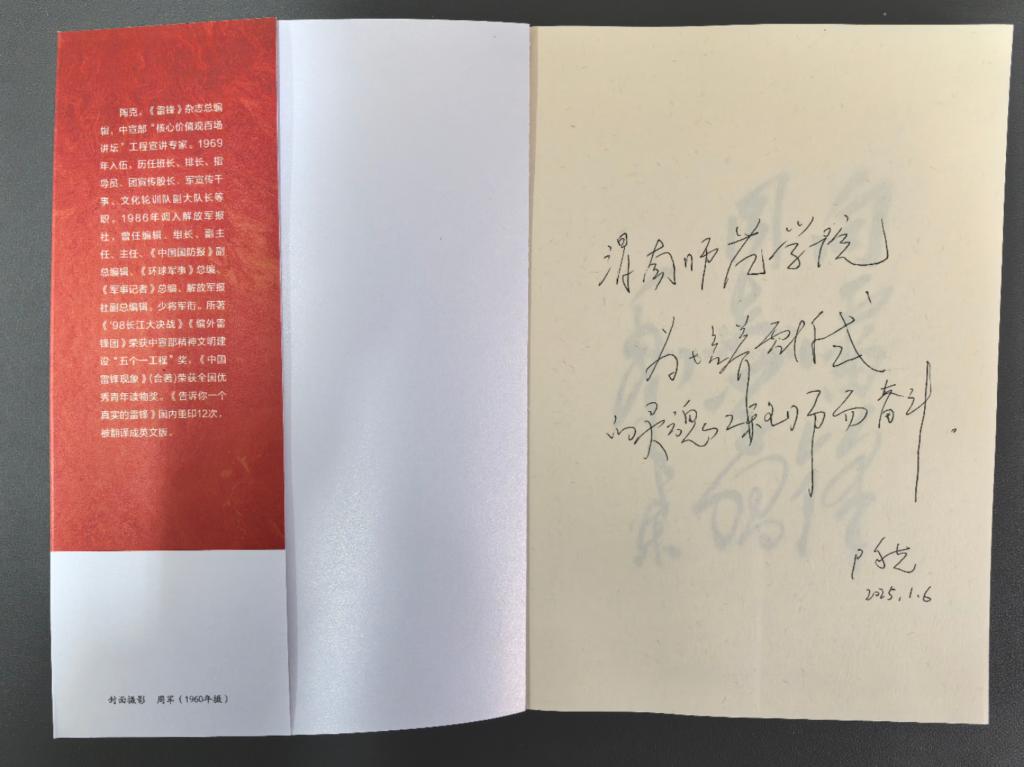 陶克,《雷锋》杂志总编
辑,中宣部“核心价值观百场
讲坛”工程宣讲专家。1969
年入伍,历任班长、排长、指
导员、团宣传股长、军宣传干
事、文化轮训队副大队长等
职。1986年调入解放军报
社,曾任编辑、组长、副主
任、主任、《中国国防报》副
总编辑、《环球军事》总编、
《军事记者》总编、解放军报
社副总编辑,少将军衔。所著
《'98长江大决战》《编外雷
锋团》荣获中宣部精神文明建
设“五个一工程”奖,《中国
雷锋现象》(合著)荣获全国优
秀青年读物奖。《告诉你一个
真实的雷锋》国内重印12次,
被翻译成英文版。
封面摄影 周军(1960年摄)
渭南师范学院
为培养时代
的灵魂工程师而奋斗.
陶克
2025.1.6